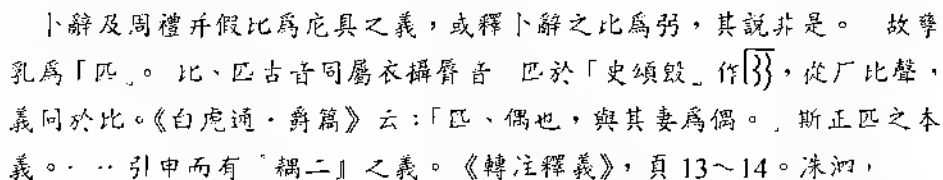 卜辭及周禮并假比爲庀具之義，或釋卜辭之比爲弜，其說非是。 故孳
乳爲「匹」。比、匹古音同屬衣攝脣音 匹於「史頌𣪘」作，從厂比聲，
義同於比。《白虎通．爵篇》云：「匹、偶也，與其妻爲偶。」斯正匹之本
義。…引申而有「耦二」之義。《轉注釋義》，頁13～14。洙泗，